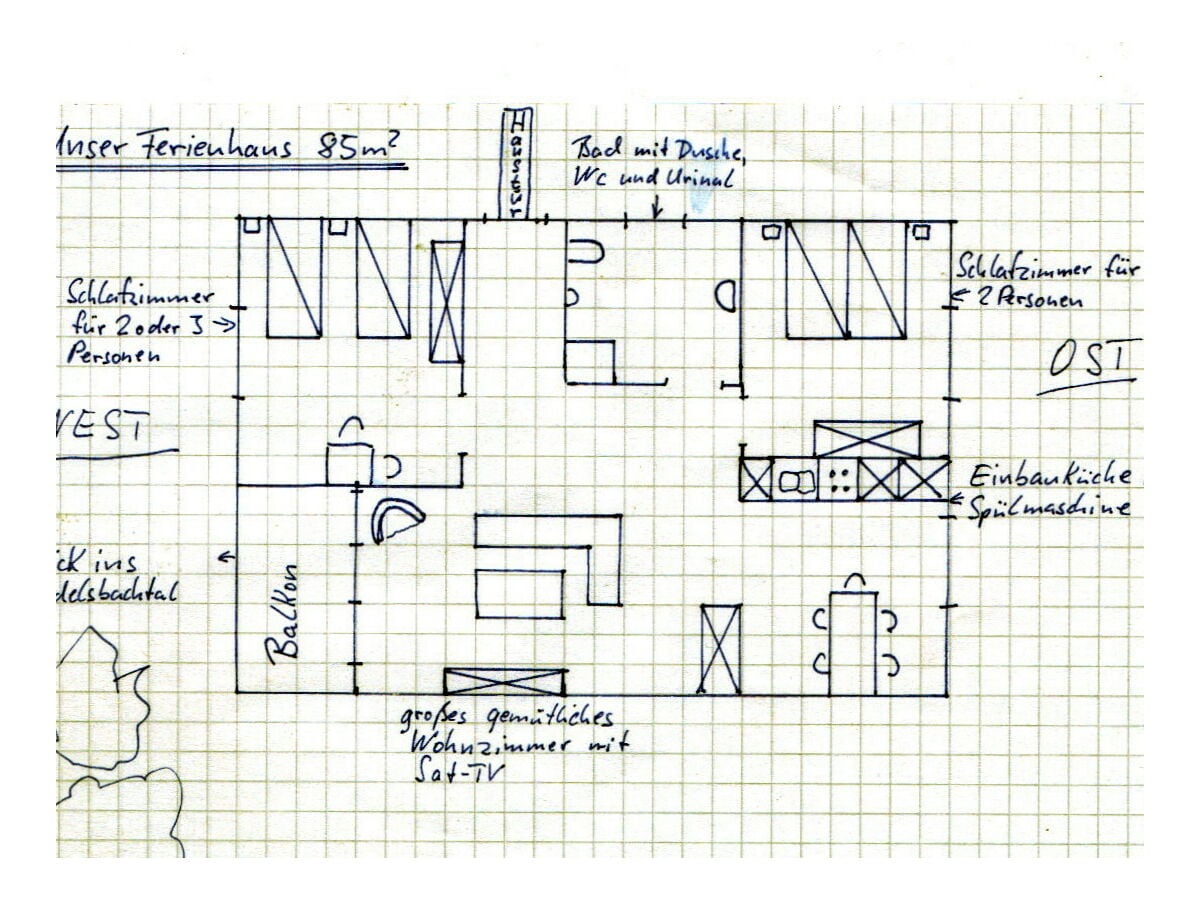 Unser Ferienhaus 85m²
Haustür
Bad mit Dusche,
Wc und Urinal
Schlafzimmer
für 2 oder 3 →
Personen
Schlafzimmer für
← 2 Personen
OST
WEST
Einbauküche
← Spülmaschine
ick ins
delsbachtal
←
Balkon
großes gemütliches
Wohnzimmer mit
Sat-TV